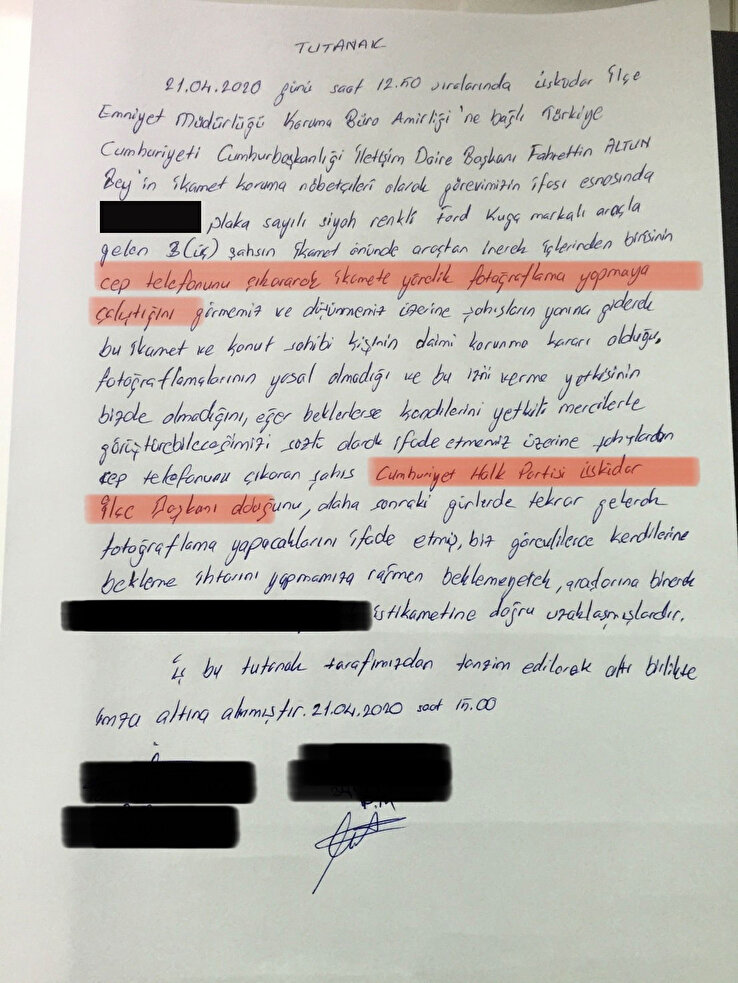 TUTANAK
21.04.2020 günü saat 12.50 sıralarında Üsküdar İlçe
Emniyet Müdürlüğü Koruma Büro Amirliği'ne bağlı Türkiye
Cumhuriyeti Cumhurbaşkanlığı İletişim Daire Başkanı Fahrettin ALTUN
Bey'in ikamet koruma nöbetçileri olarak görevimizin ifası esnasında
plaka sayılı siyah renkli Ford Kuga markalı araçla
gelen 3 (üç) şahsın ikamet önünde araçtan inerek içlerinden birisinin
cep telefonunu çıkararak ikamete yönelik fotoğraflama yapmaya
çalıştığını görmemiz ve üzerine şahısların yanına giderek
bu ikamet ve konut sahibi kişinin daimi korunma kararı olduğu,
fotoğraflamalarının yasal olmadığı ve bu izni verme yetkisinin
bizde olmadığını, eğer beklerlerse kendilerini yetkili mercilerle
görüştürebileceğimizi sözlü olarak ifade etmemiz üzerine şahıslardan
cep telefonunu çıkaran şahıs Cumhuriyet Halk Partisi Üsküdar
İlçe Başkanı olduğunu, daha sonraki günlerde tekrar gelerek
fotoğraflama yapacaklarını ifade etmiş, biz görevlilerce kendilerine
bekleme ihtarını yapmamıza rağmen beklemeyerek, araçlarına binerek
istikametine doğru uzaklaşmışlardır.
İş bu tutanak tarafımızdan tanzim edilerek altı birlikte
imza altına alınmıştır. 21.04.2020 saat 15.00
P.M